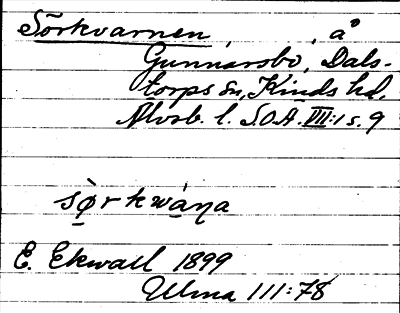 Sörkvarnen, , å
Gunnarsbo, Dals-
torps sn, Kinds hd.
Älvsb. l. S.O.Ä. VIII:1 s. 9
sø̀rkwàṇa
E. Ekwall 1899
Ulma 111:78